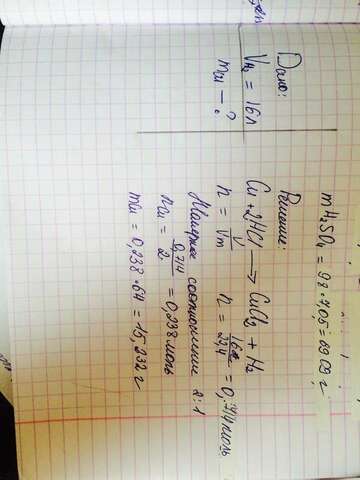 mH₂SO₄ = 98 · 7,05 = 69 09 г
Дано:
Vн₂ = 16л
mcu - ?
Решение:
Cu + 2HCl → CuCl₂ + H₂
n = V/Vm n = 16л/22,4 = 0,714моль
Молярное соотношение 2:1
ncu = 0,714/2 = 0,238моль
mcu = 0,238 · 64 = 15,232 г